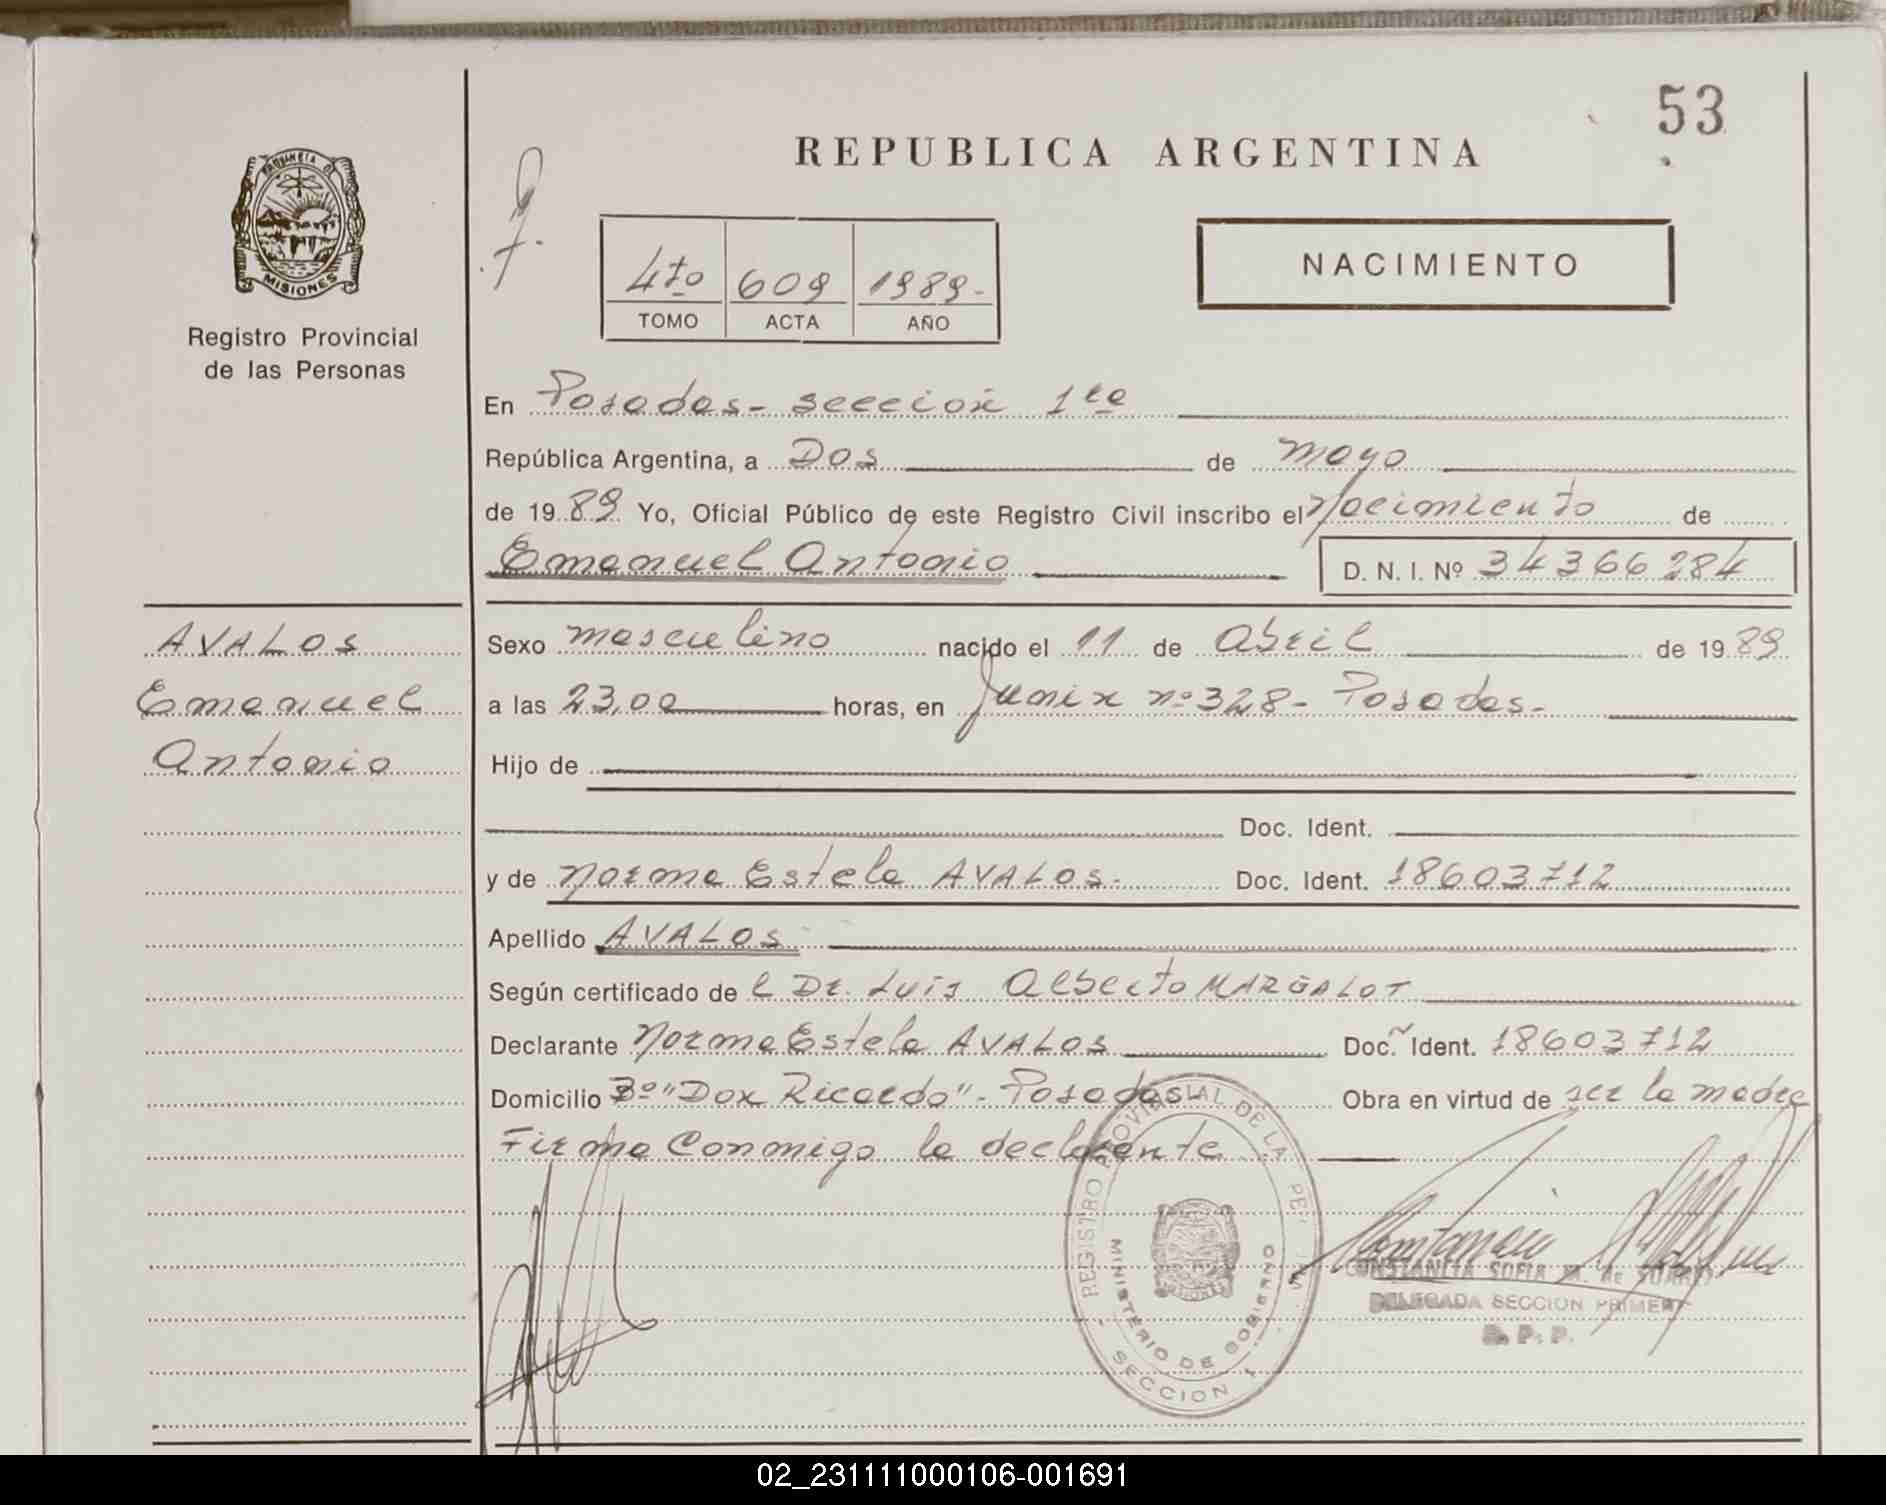 53
REPUBLICA ARGENTINA
PROVINCIA DE
MISIONES
Registro Provincial
de las Personas
4to 609 1989-
TOMO ACTA AÑO
NACIMIENTO
En Posadas - sección 1ra
República Argentina, a Dos de mayo
de 1989 Yo, Oficial Público de este Registro Civil inscribo el Nacimiento de
Emanuel Antonio D. N. I. Nº 34366284
AVALOS
Emanuel
Antonio
Sexo masculino nacido el 11 de Abril de 1989
a las 23,00 horas, en Junin nº 328 - Posadas -
Hijo de
Doc. Ident.
y de Norma Estela AVALOS - Doc. Ident. 18603712
Apellido AVALOS
Según certificado de l Dr. Luis Alberto MARGALOT
Declarante Norma Estela AVALOS Doc. Ident. 18603712
Domicilio Bº "Don Ricardo" - Posadas Obra en virtud de ser la madre
Firma Conmigo la declarante
REGISTRO PROVINCIAL DE LA PER
MINISTERIO DE GOBIERNO
SECCION 1
MISIONES
CONSTANCIA SOFIA M. de SUAREZ
DELEGADA SECCION PRIMERA
R. P. P.
02_231111000106-001691